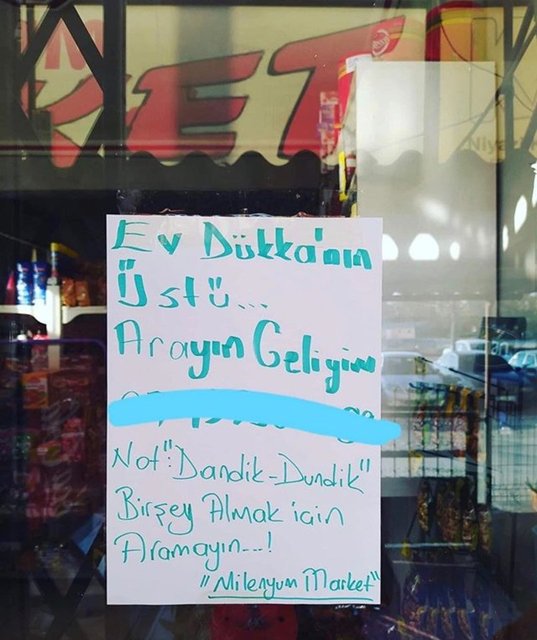 KET
Ev Dükka'nın
Üstü...
Arayın Geliyim
Not: "Dandik-Dundik"
Birşey Almak için
Aramayın...!
"Milenyum Market"